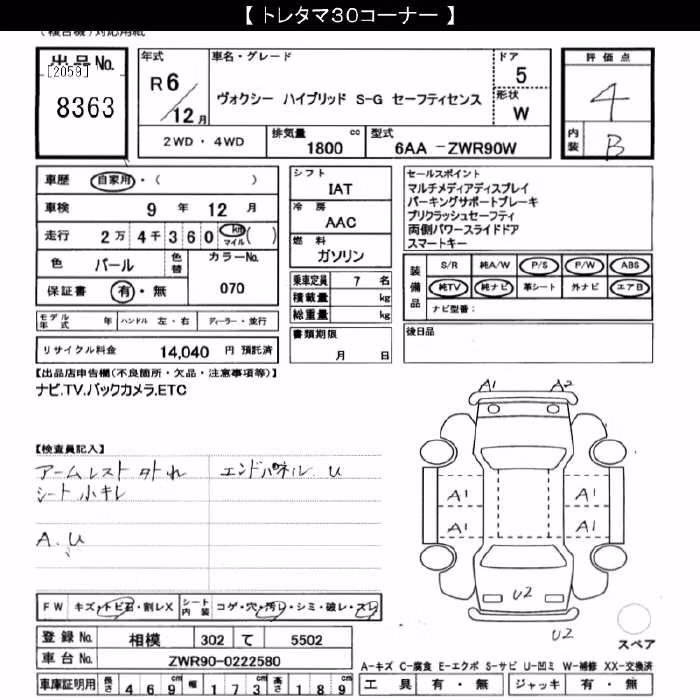 【 トレタマ30コーナー 】
(複合機)対応用紙
出品No.
[2059]
8363
年式
R 6/12月
車名・グレード
ヴォクシー ハイブリッド S-G セーフティセンス
ドア
5
形状
W
2WD・4WD
排気量 1800 cc
型式 6AA-ZWR90W
評価点
4
内装
B
車歴 自家用・( )
車検 9年 12月
走行 2万4千360 km マイル ( )
色 パール 色替 カラーNo. 070
保証書 有・無
モデル年式 年 ハンドル 左・右 ディーラー・並行
リサイクル料金 14,040 円 預託済
シフト
IAT
冷房
AAC
燃料
ガソリン
乗車定員 7 名
積載量 kg
総重量 kg
書類期限
月 日
セールスポイント
マルチメディアディスプレイ
パーキングサポートブレーキ
プリクラッシュセーフティ
両側パワースライドドア
スマートキー
装備品
S/R 純A/W P/S P/W ABS
純TV 純ナビ 革シート 外ナビ エアB
ナビ型番:
後日品
【出品店申告欄(不良箇所・欠品・注意事項等)】
ナビ.TV.バックカメラ.ETC
【検査員記入】
アームレスト タトれ エンドパネル U
シート小キレ
A.U
A1 A2
A1 A1
A1 A1
U2
U2
スペア
FW キズ・トビ石・割レX シート内装 コゲ・穴・汚レ・シミ・破レ・スレ
登録No. 相模 302 て 5502
車台No. ZWR90-0222580
車庫証明用 長さ 469 cm 幅 173 cm 高さ 189 cm
A-キズ C-腐食 E-エクボ S-サビ U-凹ミ W-補修 XX-交換済
工具 有・無 ジャッキ 有・無